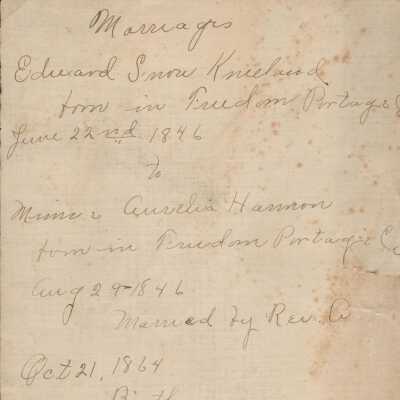 Marriages
Edward Snow Kneeland
born in Freedom Portage
June 22nd 1846
to
Aurelia Harmon
born in Freedom Portage Co
Aug 29 1846
Married by Rev. A
Oct 21, 1864